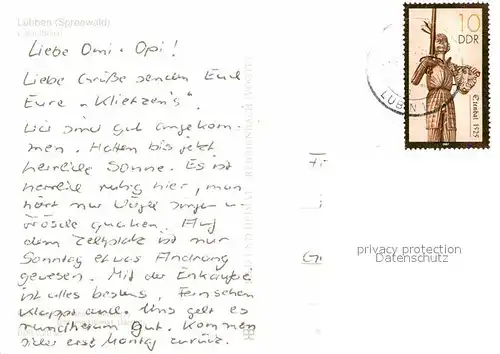 Lübben (Spreewald)
Liebe Omi + Opi!
Liebe Grüße senden Euch
Eure „Klietzen's".
Wir sind gut angekom-
men. Hatten bis jetzt
herrliche Sonne. Es ist
herrlich ruhig hier, man
hört nur Vögel singen u.
Frösche quaken. Auf
dem Zeltplatz ist nur
Sonntag etwas Andrang
gewesen. Mit der Einkauferei
ist alles bestens, Fernsehen
klappt auch. Uns geht es
rundherum gut. Kommen
erst Montag zurück.
10
DDR
LÜBBEN
1525
privacy protection
Datenschutz